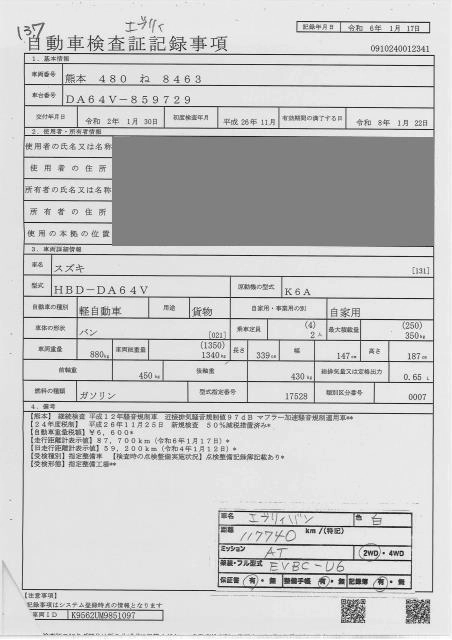 137
エヴリィ
記録年月日 令和 6年 1月 17日
自動車検査証記録事項
0910240012341
1.基本情報
車両番号 熊本 480 ね 8463
車台番号 DA64V-859729
交付年月日 令和 2年 1月 30日 初度検査年月 平成 26年 11月 有効期間の満了する日 令和 8年 1月 22日
2.使用者・所有者情報
使用者の氏名又は名称
使用者の住所
所有者の氏名又は名称
所有者の住所
使用の本拠の位置
3.車両詳細情報
車名 スズキ [131]
型式 HBD-DA64V 原動機の型式 K6A
自動車の種別 軽自動車 用途 貨物 自家用・事業用の別 自家用
車体の形状 バン [021] 乗車定員 (4) 2人 最大積載量 (250) 350kg
車両重量 880kg 車両総重量 (1350) 1340kg 長さ 339cm 幅 147cm 高さ 187cm
前軸重 450kg 後軸重 430kg 総排気量又は定格出力 0.65 L
燃料の種類 ガソリン 型式指定番号 17528 類別区分番号 0007
4.備考
【熊本】 継続検査 平成12年騒音規制車 近接排気騒音規制値97dB マフラー加速騒音規制適用車**
【24年度税制】 平成26年11月25日 新規検査 50%減税措置済み*
【自動車重量税額】 ¥6,600*
【走行距離計表示値】 87,700km(令和6年1月17日)*
【旧走行距離計表示値】 59,200km(令和4年1月12日)*
【受検種別】指定整備車 【検査時の点検整備実施状況】点検整備記録簿記載あり*
【受検形態】指定整備工場**
車名 エヴリィバン 色 白
距離 117740 km/(特記)
ミッション AT 2WD・4WD
架装・フル型式 EVBC-U6
保証書 有・無 整備手帳 有・無 記録簿 有・無
【注意事項】
記録事項はシステム登録時点の情報となります
車両ID K9562UM9851097